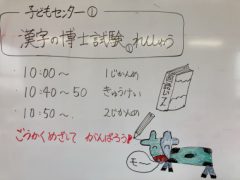 子どもセンター①
漢字の博士試験①れんしゅう
・10:00～ 1じかんめ
・10:40～50 きゅうけい
・10:50～ 2じかんめ
ごうかくめざして がんばろう！
モ～